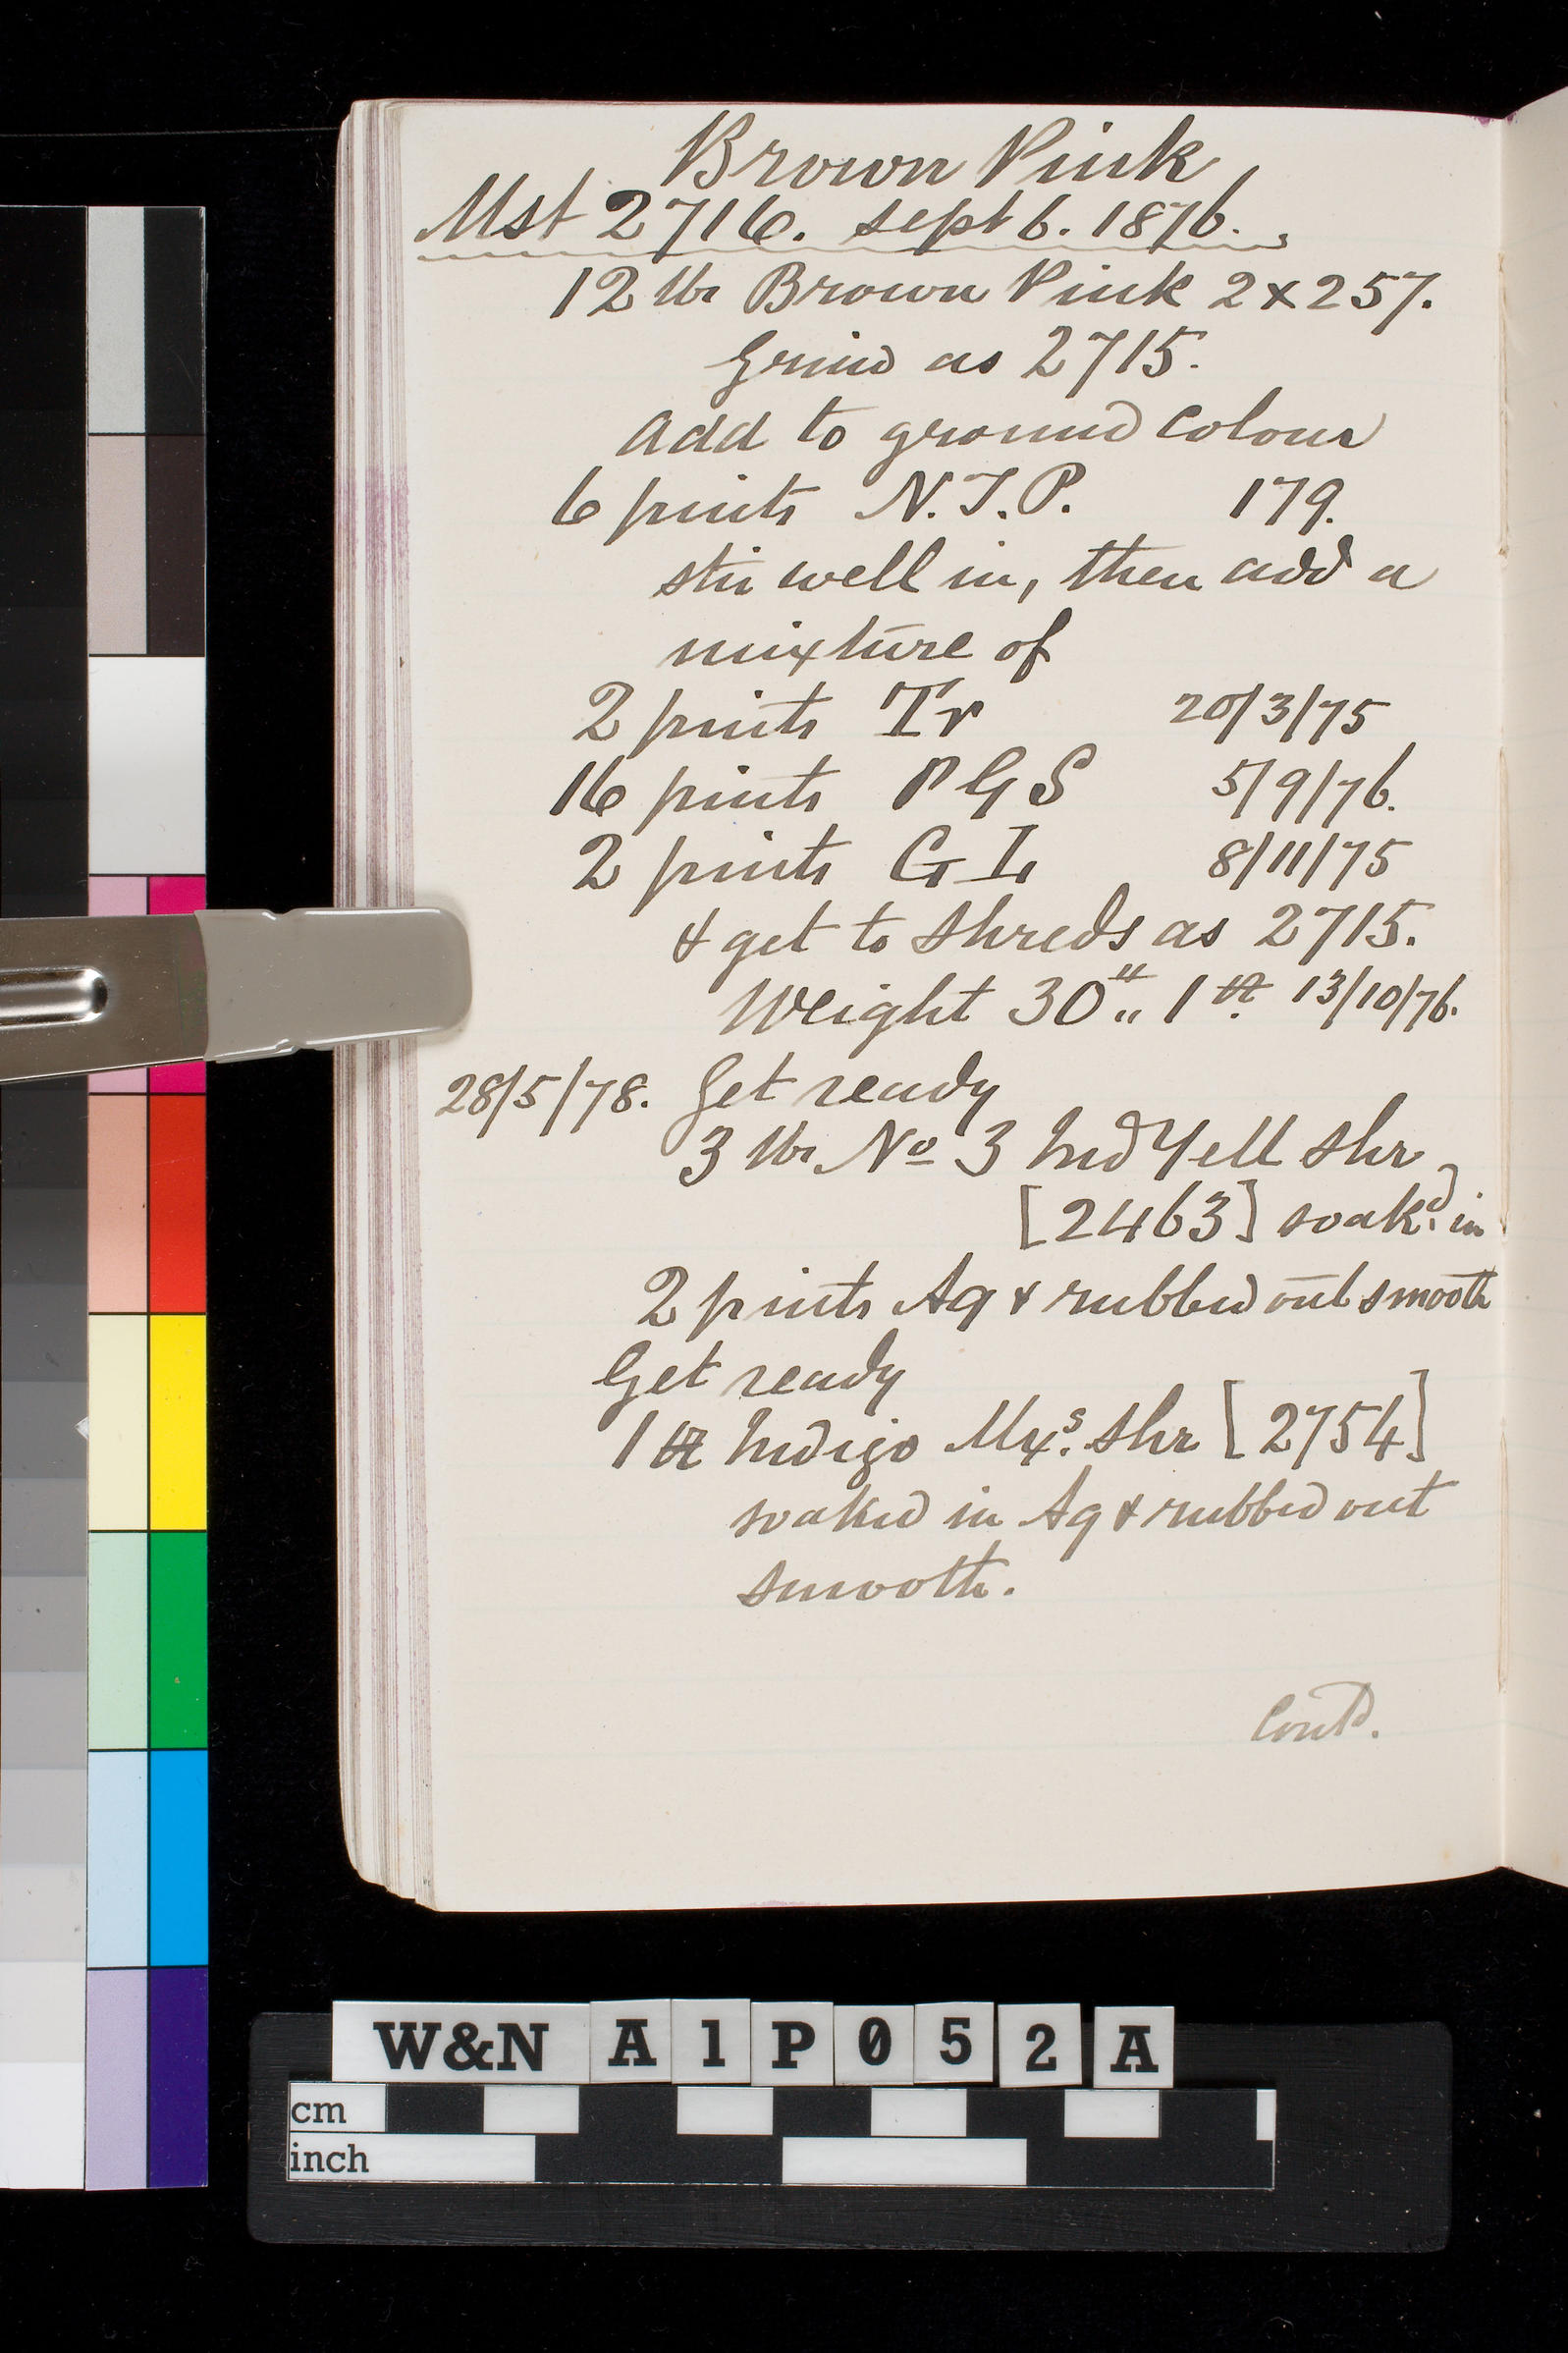 Brown Pink
Mst 2716. sept 6. 1876.
12 lbs Brown Pink 2x257.
Grind as 2715.
Add to ground colour
6 pints N.T.P. 179.
stir well in, then add a
mixture of
2 pints Tr 20/3/75
16 pints PGS 5/9/76.
2 pints GL 8/11/75
& get to shreds as 2715.
Weight 30 1 13/10/76.
28/5/78. Get ready
3 lbs No 3 Ind Yell shr
[2463] soakd. in
2 pints Aq & rubbed out smooth
Get ready
1 lb Indigo Mxs. shr [2754]
soaked in Aq & rubbed out
smooth.
Contd.
W&N A1P052A
cm
inch